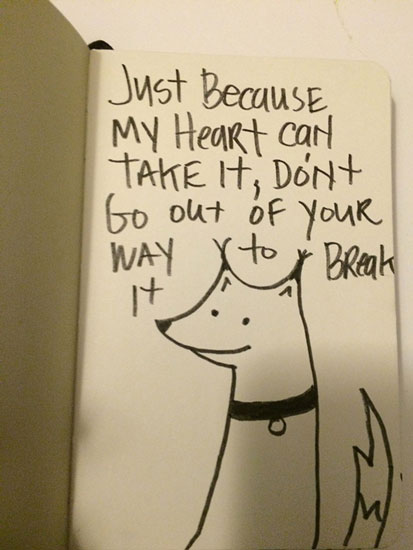 Just Because
My Heart can
TAKE It, Don't
Go out of your
way to Break
It